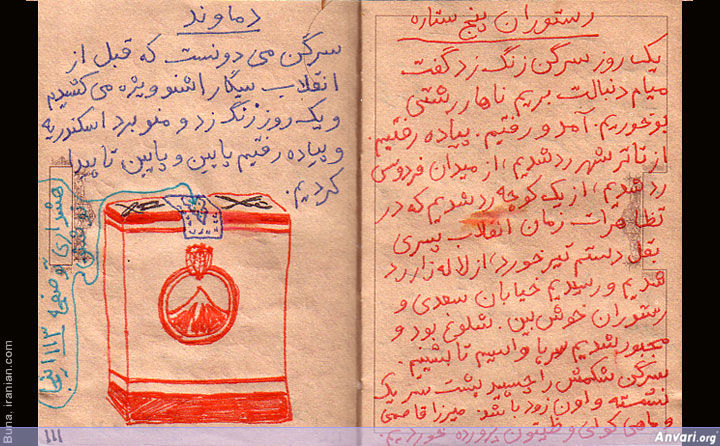 رستوران پنج ستاره
یک روز سرگن زنگ زد گفت
میام دنبالت بریم ناهار رشتی
بوخوریم. آمد و رفتیم. پیاده رفتیم.
از تاتر شهر رد شدیم، از میدان فردوسی
رد شدیم، از یک کوچه رد شدیم که در
تظاهرات زمان انقلاب پسری
بقل دستم تیر خورد، از لاله زار رد
شدیم و رسیدیم خیابان سعدی و
رستوران خوش بین. شلوغ بود و
مجبور شدیم سرپا وایسیم تا بشینیم.
سرگن شکمش را چسبید پشت سر یک
نشسته و اون زود پا شد. میرزا قاسمی
و ماهی کولی و زیتون پرورده خوردیم.
دماوند
سرگن می دونست که قبل از
انقلاب سیگار اشنو ویژه می کشیدم
و یک روز زنگ زد و منو برد اسکندریه
و پیاده رفتیم پایین و پایین تا پیدا
کردیم.
هشداری
تو صفحه ۱۱۳
۱۱۱
Buna. iranian.com
Anvari.org